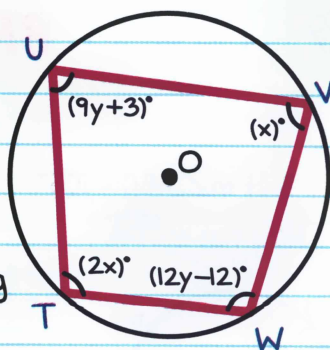 U
V
(9y+3)°
(x)°
O
(2x)°
(12y-12)°
T
W